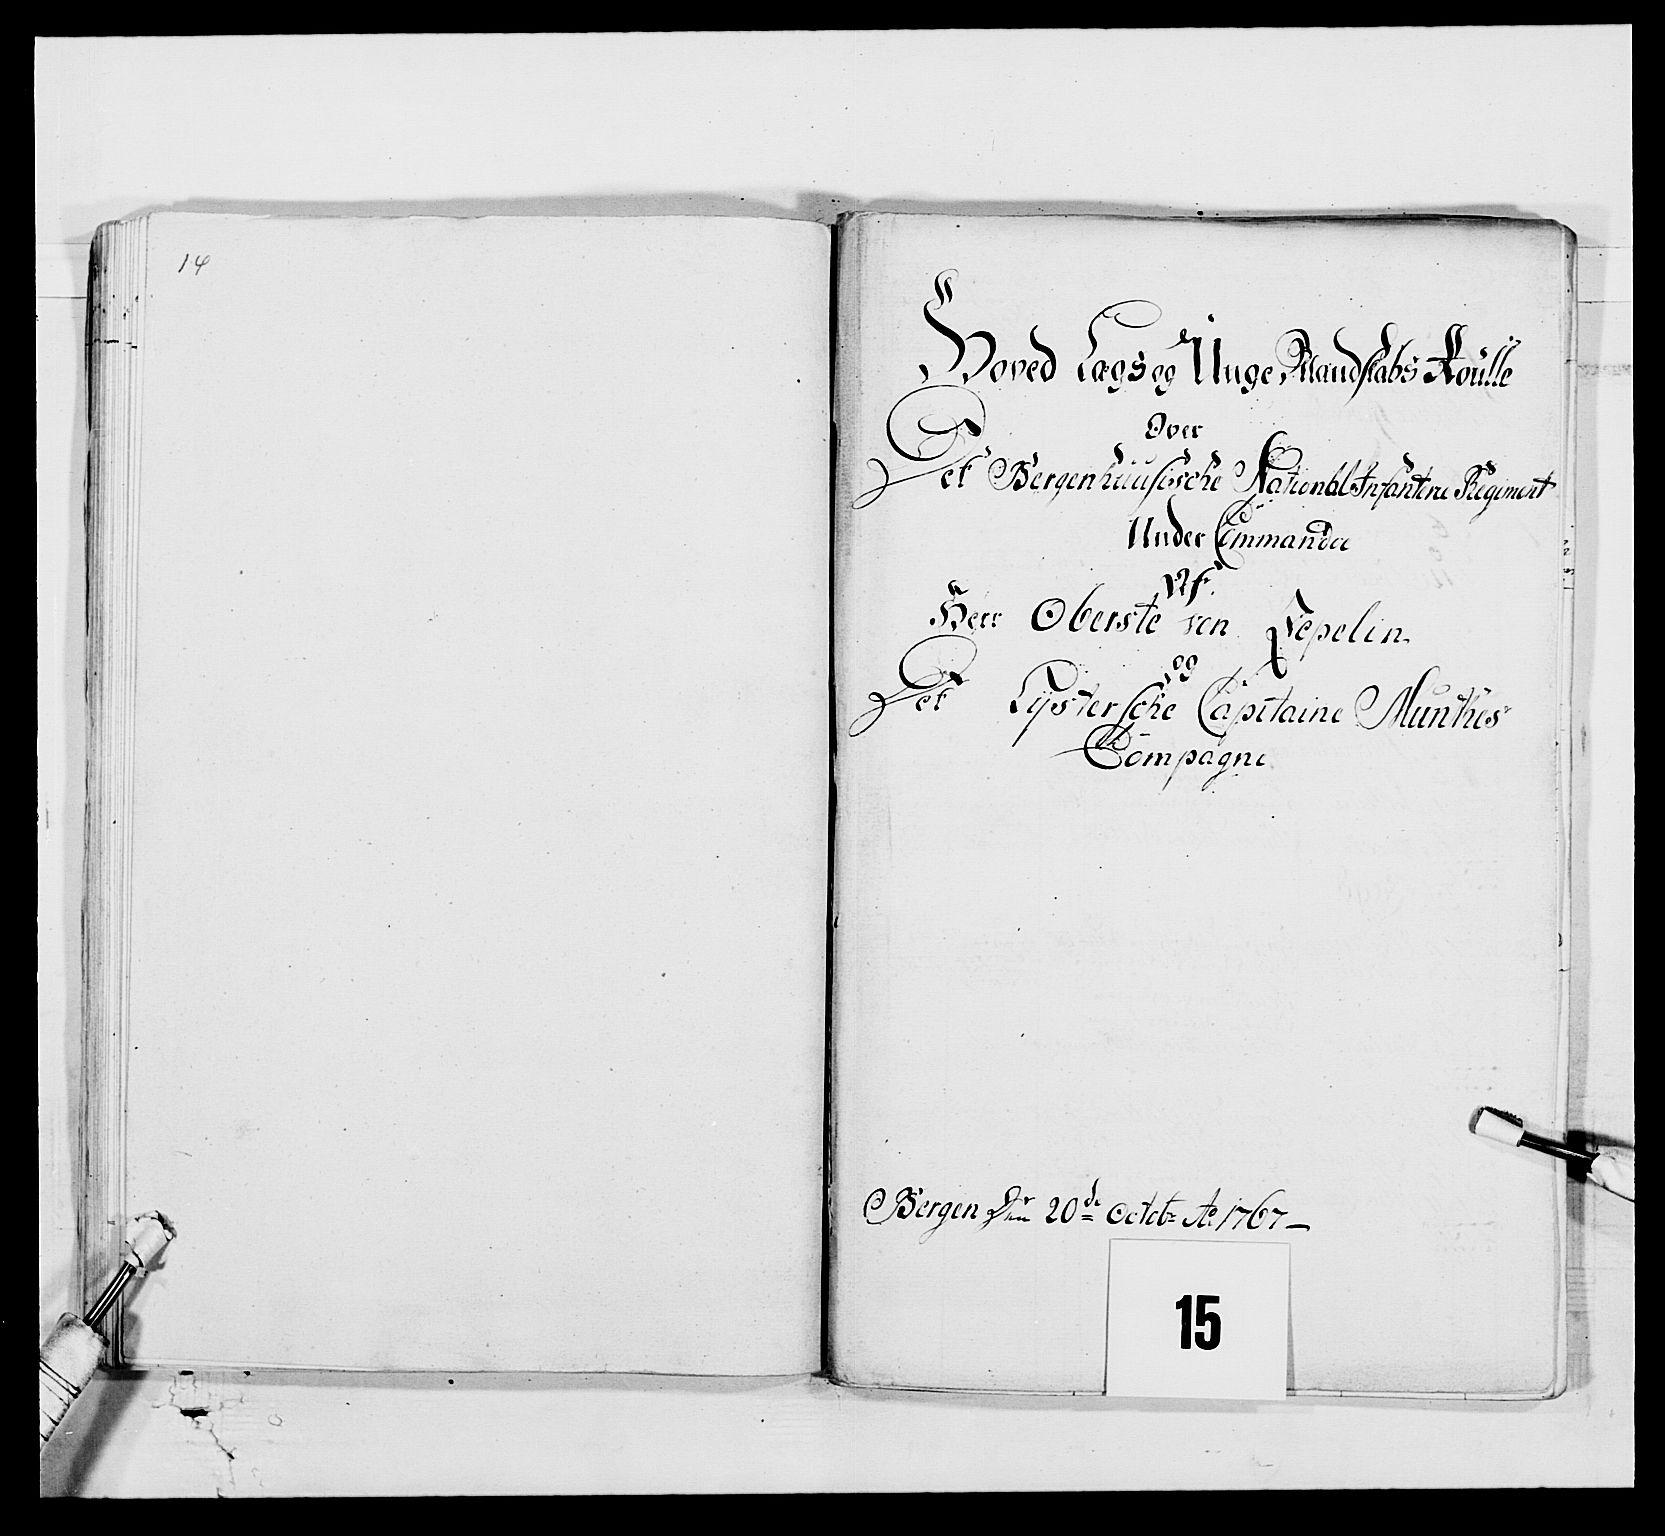 14
Hoved Lægs og Unge Mandskabs Roulle
Over
Det Bergenhuusische National Infanterie Regiment
Under Commando
Af
Herr Oberste von Zepelin
og
Det Lystersche Capitaine Munthes
Compagne
Bergen Den 20de Octobr Ao 1767
15